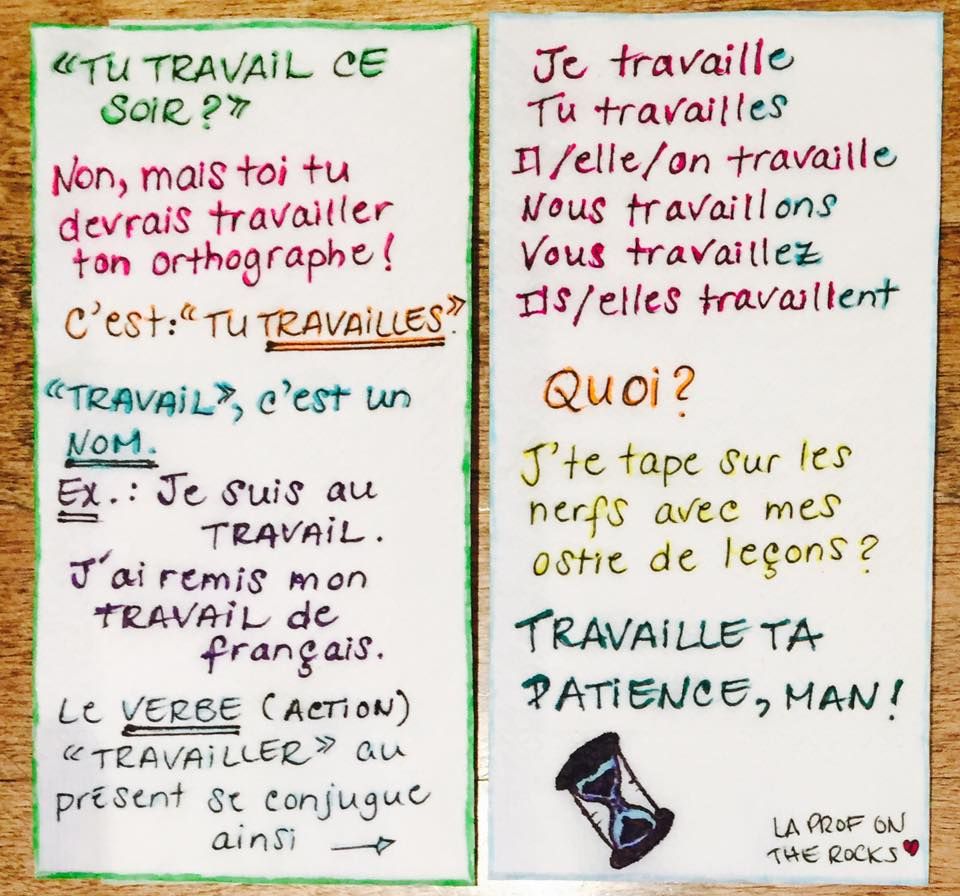 «TU TRAVAIL CE
SOIR?»
Non, mais toi tu
devrais travailler
ton orthographe!
C'est: "TU TRAVAILLES".
«TRAVAIL», c'est un
NOM.
Ex.: Je suis au
TRAVAIL.
J'ai remis mon
TRAVAIL de
français.
Le VERBE (ACTION)
«TRAVAILLER» au
présent se conjugue
ainsi →
Je travaille
Tu travailles
Il/elle/on travaille
Nous travaillons
Vous travaillez
Ils/elles travaillent
Quoi?
J'te tape sur les
nerfs avec mes
ostie de leçons?
TRAVAILLE TA
PATIENCE, MAN!
LA PROF ON
THE ROCKS♥